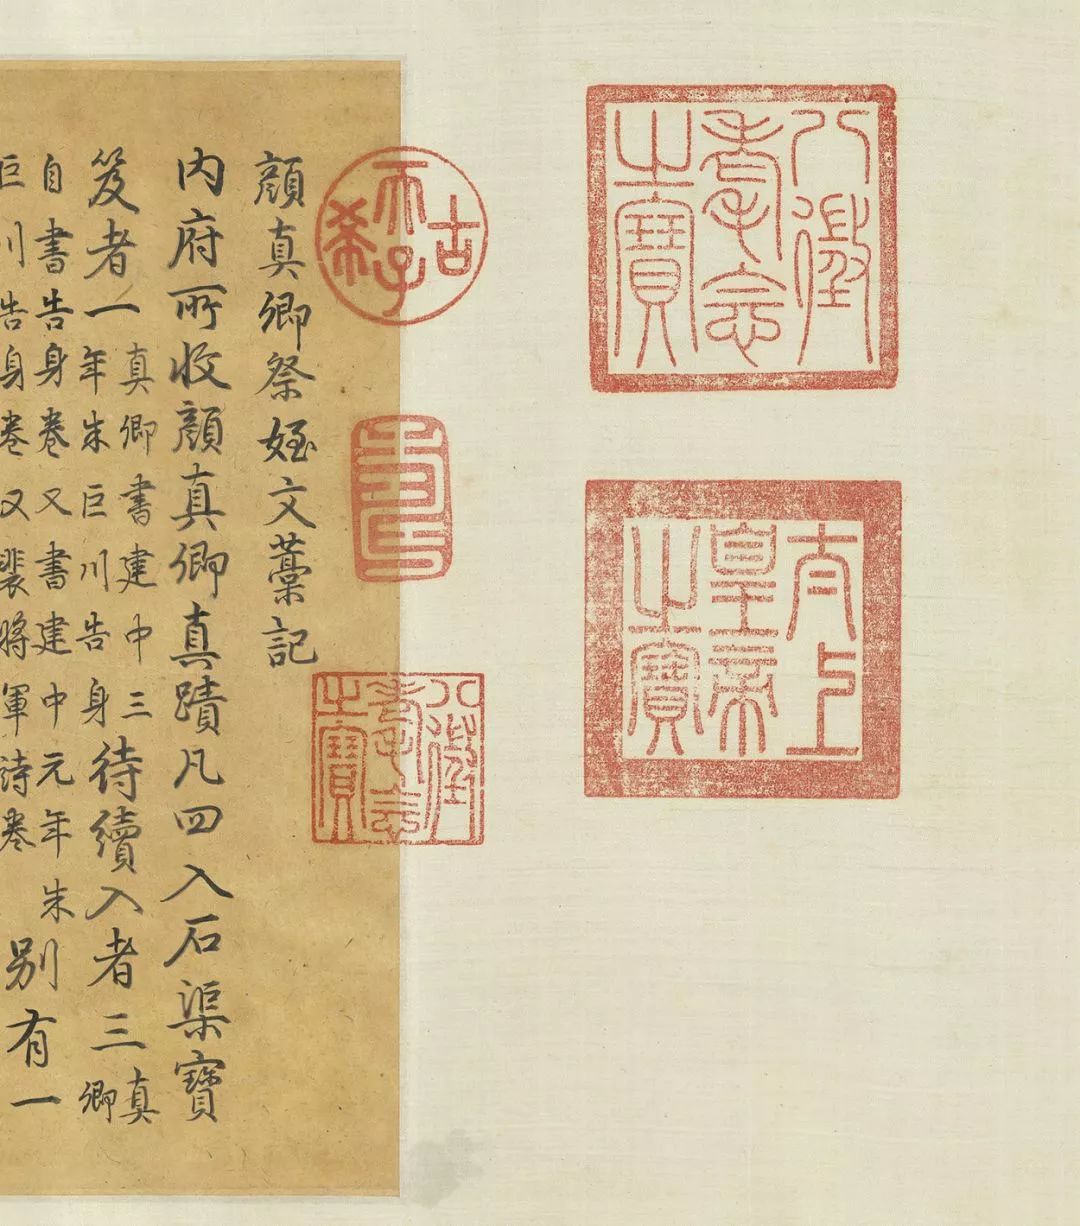 八徵耄念之寶
太上皇帝之寶
古希天子
壽
八徵耄念之寶
顔真卿祭姪文藁記
内府所收顔真卿真蹟凡四入石渠寶
笈者一真卿書建中三年朱巨川告身待續入者三真卿
自書告身卷又書建中元年朱巨川告身卷又裴將軍詩卷别有一